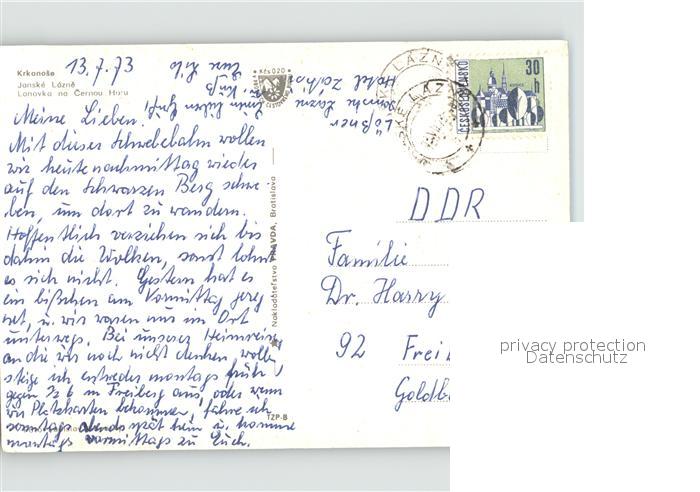 Krkonoše
Janské Lázně
Lanovka na Černou Horu
13.7.73
Kčs 0,20
ČESKOSLOVENSKO
30 h
Meine Lieben.
Mit dieser Schwebebahn wollen
wir heute nachmittag wieder
auf den Schwarzen Berg schwe-
ben, um dort zu wandern.
Hoffentlich verziehen sich bis
dahin die Wolken, sonst lohnt
es sich nicht. Gestern hat es
ein bißchen am Vormittag gereg
net, u. wir waren nur im Ort
unterwegs. Bei unserer Heimreise
an die wir noch nicht denken wollen
steige ich entweder montags früh
gegen ½ 6 in Freiberg aus, oder wenn
wir Platzkarten bekommen, fahre ich
sonntags abends spät heim u. komme
montags vormittags zu Euch.
Lößner
Hotel
Nakladateľstvo PRAVDA, Bratislava
TZP-B
DDR
Familie
Dr. Harry
92 Freib
Goldb
privacy protection
Datenschutz